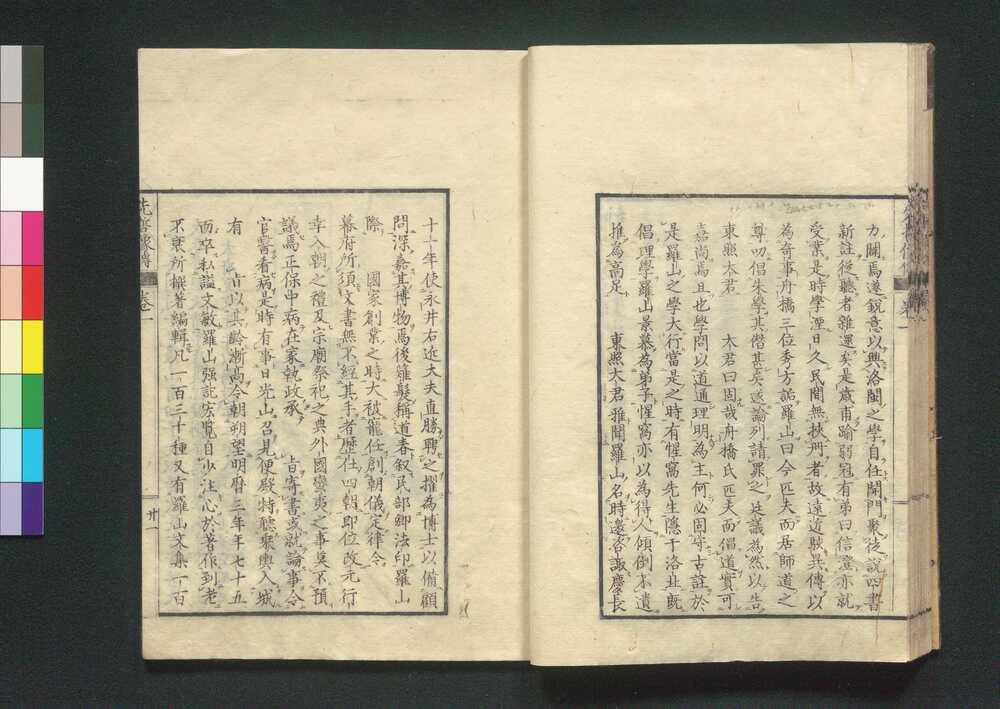 力闢焉遂鋭意以興洛閩之學自任開門聚徒説四書
新註從聽者雜還矣是歳甫踰弱冠有弟曰信澄亦就
受業是時學湮日久民間無挾冊者故遠近駭異傳以
為奇事舟橋三位秀方詬羅山曰今匹夫而居師道之
尊叨倡朱學其僭甚矣遂論列請罪之廷議為然以告
東照大君　大君曰固哉舟橋氏匹夫而倡道實可
嘉尚焉且也學問以道通理明為主何必固守古註於
是羅山之學大行當是之時有惺窩先生隱于洛北既
倡理學羅山景慕為弟子惺窩亦以為得人傾倒不遺
推為高足　東照大君雅聞羅山名時還召諏慶長
十一年使永井右近大夫直勝聘之擢為博士以備顧
問深嘉其博物焉後薙髮稱道春叙民部卿法印羅山
際　國家創業之時大被寵任創朝儀定律令
幕府所須文書無不經其手者歴仕四朝即位改元行
幸入朝之禮及宗廟祭祀之典外國蠻夷之事莫不預
議焉正保中病在家執政承　旨寄書或就論事令
官醫看病是時有事日光山召見便殿特聽乘輿入城
有　旨以其齡漸高令朝朔望明暦三年年七十五
而卒私謚文敏羅山強記宏覧自少注心於著作到老
不衰所撰著編輯凡一百三十種又有羅山文集一百
先哲叢傳
卷一
廿一